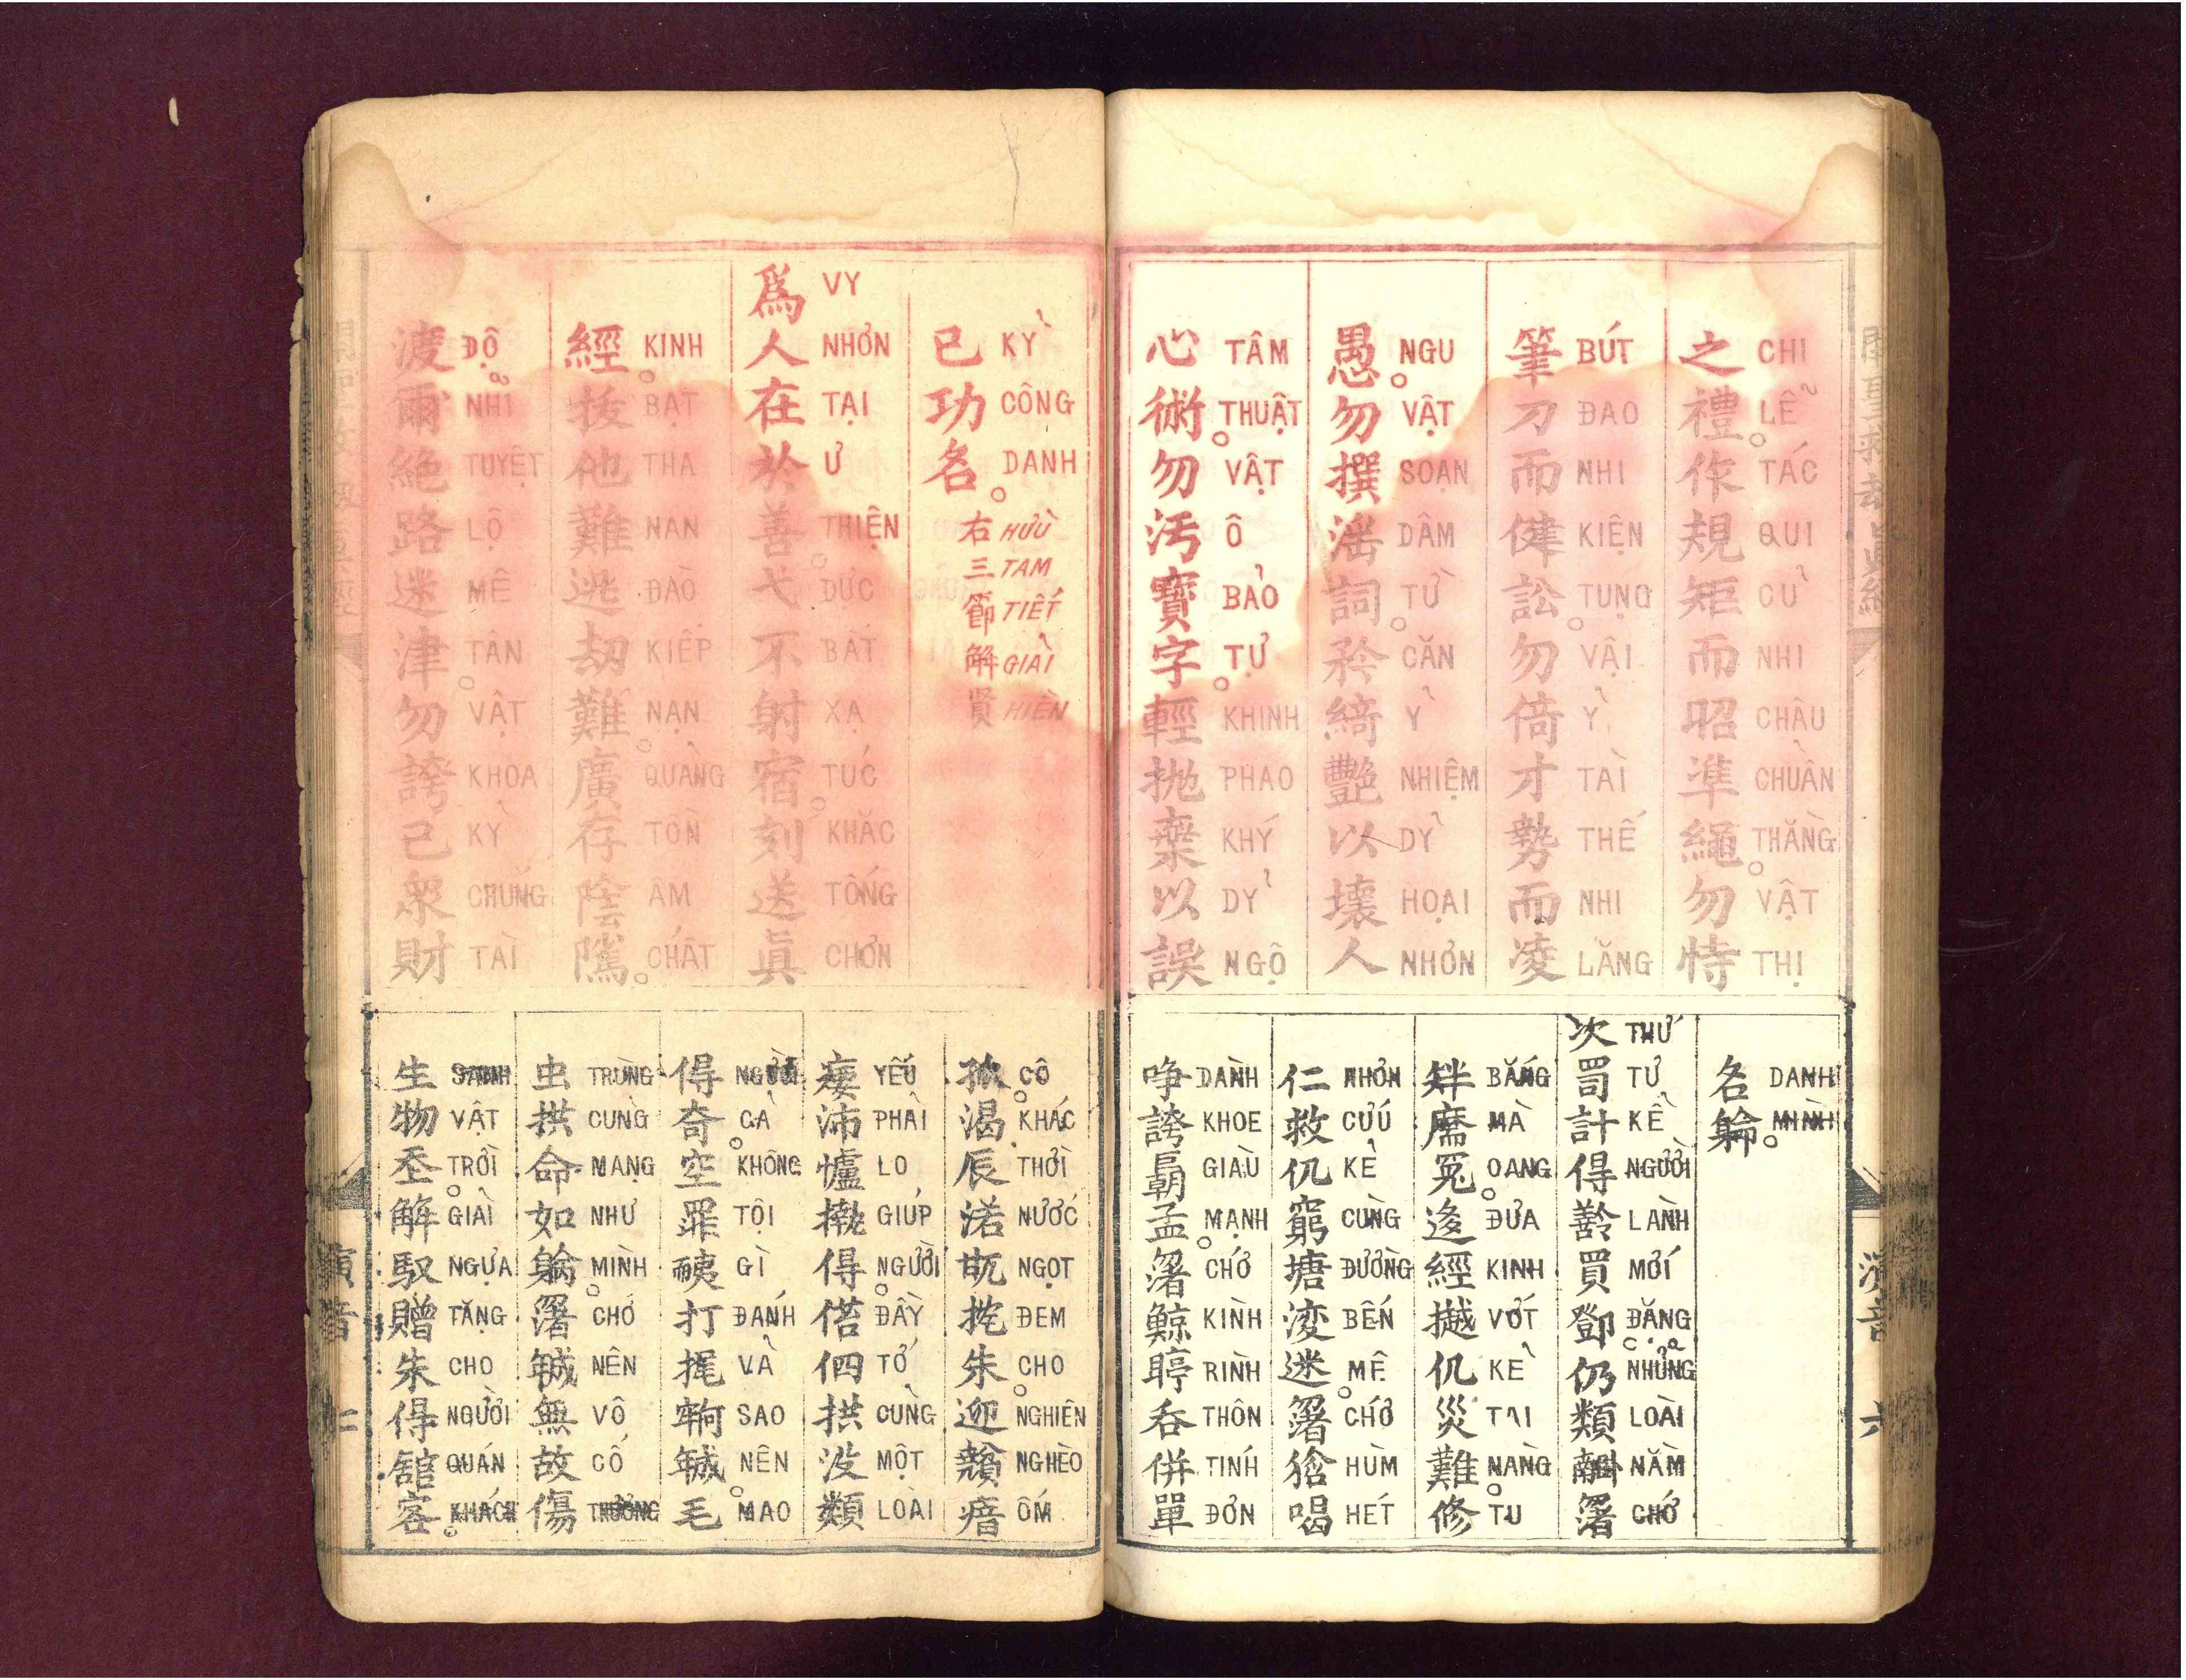 之 CHI 禮 LỄ 。 作 TÁC 規 QUI 矩 CỦ 而 NHI 昭 CHÂU 準 CHUẨN 繩 THẰNG 。 勿 VẬT 恃 THỊ
筆 BÚT 刀 ĐAO 而 NHI 健 KIỆN 訟 TỤNG 。 勿 VẬT 倚 Ỷ 才 TÀI 勢 THẾ 而 NHI 凌 LĂNG
愚 NGU 。 勿 VẬT 撰 SOẠN 滛 DÂM 詞 TỪ 。 矜 CĂN 綺 Ỷ 艷 NHIỆM 以 DỶ 壞 HOẠI 人 NHƠN
心 TÂM 術 THUẬT 。 勿 VẬT 汚 Ô 寶 BẢO 字 TỰ 。 輕 KHINH 拋 PHAO 棄 KHÝ 以 DỶ 誤 NGỘ
名 DANH 躬 MÌNH 。
次 THỨ 罰 TƯ 計 KỂ 得 NGƯỜI LÀNH 買 MỚI 鄧 ĐẶNG 仍 NHỮNG 類 LOÀI NẰM CHỚ
BẰNG MÀ 冤 OANG 。 ĐỨA 經 KINH VỚT 仉 KẺ 災 TAI 難 NÀNG 。 修 TU
仁 NHƠN 救 CỨU 仉 KẺ 窮 CÙNG 塘 ĐƯỜNG BẾN 迷 MÊ 。 CHỚ HÙM 喝 HÉT
噇 DÀNH 誇 KHOE GIÀU 孟 MẠNH 。 CHỚ 鯨 KÌNH RÌNH 吞 THÔN 併 TINH 單 ĐƠN
演音
六
已 KỶ 功 CÔNG 名 DANH 。 右 HỬU 三 TAM 節 TIẾT 解 GIẢI 贤 HIỀN
爲 VY 人 NHƠN 在 TẠI 於 Ư 善 THIỆN 。 弋 DỰC 不 BẤT 射 XẠ 宿 TÚC 。 刻 KHẮC 送 TỐNG 眞 CHƠN
經 KINH 。 拔 BẠT 他 THA 難 NAN 逃 ĐÀO 劫 KIẾP 難 NẠN 。 廣 QUẢNG 存 TỒN 陰 ÂM 隲 CHẤT 。
渡 ĐỘ 爾 NHĨ 絕 TUYỆT 路 LỘ 迷 MÊ 津 TÂN 。 勿 VẬT 誇 KHOA 己 KỶ 眾 CHÚNG 財 TÀI
孤 CÔ 。 渴 KHÁC 辰 THỜI 渃 NƯỚC NGỌT ĐEM 朱 CHO 。 迎 NGHIÊN NGHÈO 瘖 ỐM
YẾU 沛 PHẢI LO GIÚP 得 NGƯỜI 。 偌 ĐẦY TỚ 拱 CŨNG 沒 MỘT 類 LOÀI
得 NGƯỜI 奇 CẢ 。 空 KHÔNG 罪 TỘI GÌ 打 ĐÁNH VẢ SAO NÊN 。 毛 MAO
虫 TRÙNG 拱 CUNG 命 MẠNG 如 NHƯ MÌNH 。 CHỚ NÊN 無 VÔ 故 CỐ 傷 THƯƠNG
生 SANH 物 VẬT TRỜI 。 解 GIẢI 馭 NGỰA 贈 TẶNG 朱 CHO 得 NGƯỜI 舘 QUÁN 客 KHÁCH 。
演音